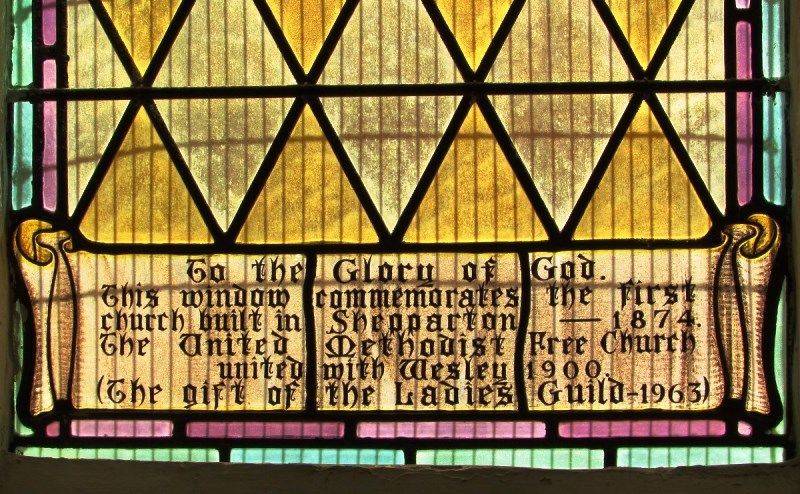 To the Glory of God.
This window commemorates the first
church built in Shepparton — 1874.
The United Methodist Free Church
united with Wesley 1900.
(The gift of the Ladies Guild-1963)